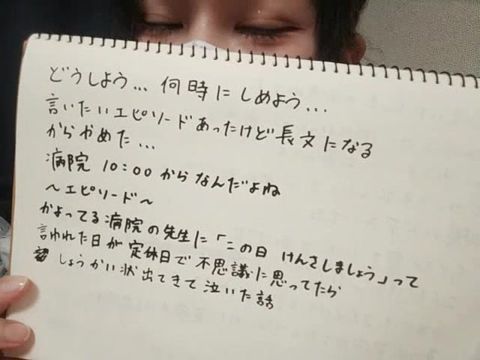 どうしよう... 何時にしめよう...
言いたいエピソードあったけど長文になる
からやめた...
病院 10:00からなんだよね
~エピソード~
かよってる病院の先生に「この日 けんさしましょう」って
言われた日が定休日で不思議に思ってたら
しょうかい状出てきて泣いた話